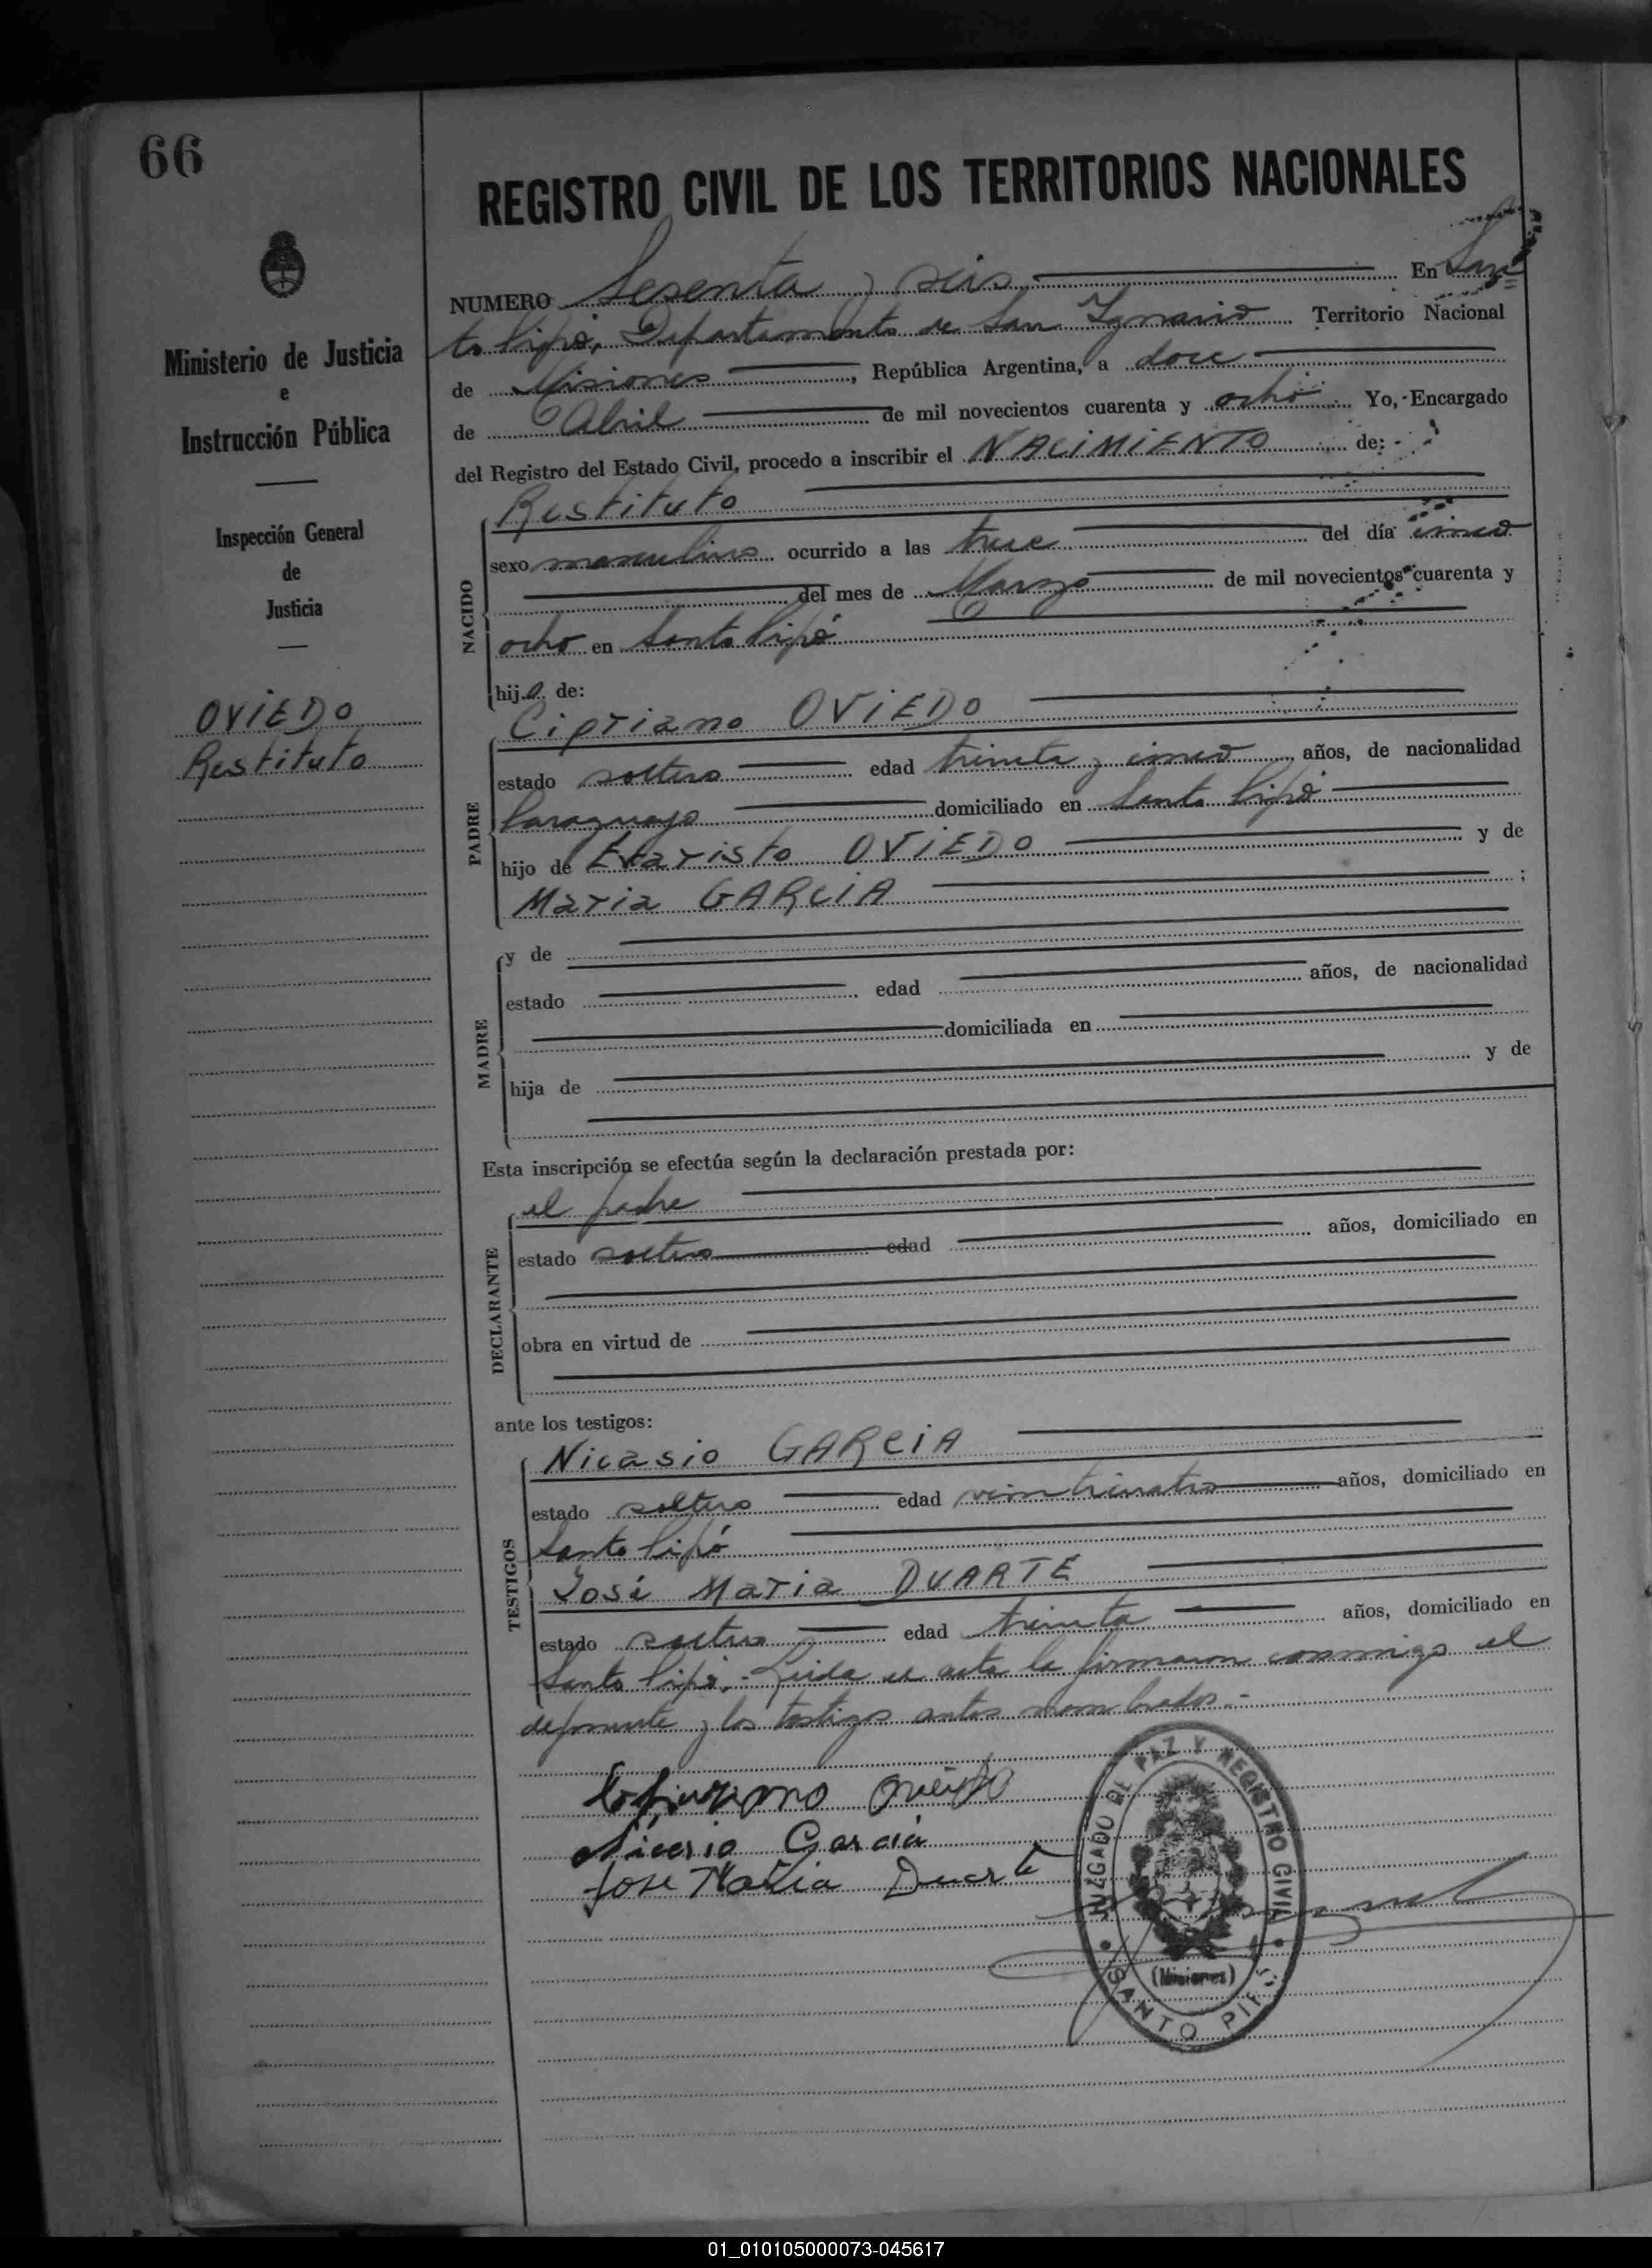 66
REGISTRO CIVIL DE LOS TERRITORIOS NACIONALES
Ministerio de Justicia
e
Instrucción Pública
Inspección General
de
Justicia
OVIEDO
Restituto
NUMERO Sesenta y seis En San
to Pipó, Departamento de San Ignacio Territorio Nacional
de Misiones, República Argentina, a doce
de Abril de mil novecientos cuarenta y ocho Yo, Encargado
del Registro del Estado Civil, procedo a inscribir el NACIMIENTO de:
NACIDO
Restituto
sexo masculino ocurrido a las trece del día cinco
del mes de Marzo de mil novecientos cuarenta y
ocho en Santo Pipó
hijo de:
PADRE
Cipriano OVIEDO
estado soltero edad treinta y cinco años, de nacionalidad
Paraguayo domiciliado en Santo Pipó
hijo de Evaristo OVIEDO y de
Maria GARCIA ;
MADRE
y de
estado edad años, de nacionalidad
domiciliada en
hija de y de
Esta inscripción se efectúa según la declaración prestada por:
DECLARANTE
el padre
estado soltero edad años, domiciliado en
obra en virtud de
ante los testigos:
TESTIGOS
Nicasio GARCIA
estado soltero edad veinticuatro años, domiciliado en
Santo Pipó
José Maria DUARTE
estado soltero edad treinta años, domiciliado en
Santo Pipó.- Leida el acta la firmaron conmigo el
deponente y los testigos antes nombrados.-
Oviedo
Garcia
Jose Maria Duarte
JUZGADO DE PAZ Y REGISTRO CIVIL
(Misiones)
SANTO PIPÓ
01_010105000073-045617